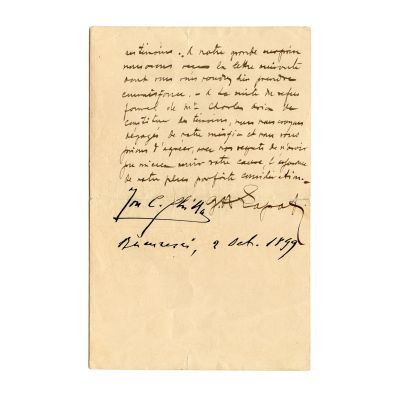 ses témoins. A notre grande surprise
nous avons reçu la lettre suivante
dont nous vous voudrez bien prendre
connaissance. A la suite de refus
formel de Mr. Charles de
constituer des témoins, nous nous croyons
dégagés de notre mission et nous vous
prions d'agréer, avec nos regrets de n'avoir
pu mieux servir votre cause l'assurance
de notre plus parfaite considération.
Jon C.
Bucuresci, 2 Oct. 1899